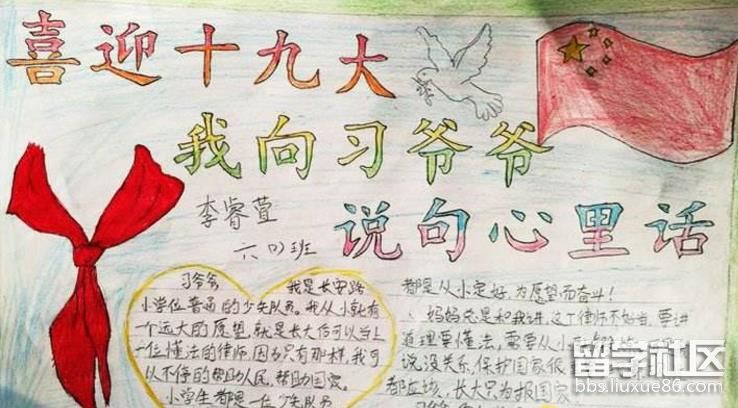 喜迎十九大
我向习爷爷
说句心里话
李睿萱
六(1)班
习爷爷 我是长安路
小学位普通的少先队员。我从小就有
一个远大的愿望,就是长大后可以当上
一位懂法的律师,因为只有那样,我可
以不停的帮助人民,帮助国家。
小学生都是一位少先队员
都是从小定好,为愿望而奋斗!
妈妈总是和我讲,这个律师不好当,要讲
道理要懂法,需要从小
说没关系,保护国家很
都应该,长大只为报国家
留学社区
bbs.liuxue86.com